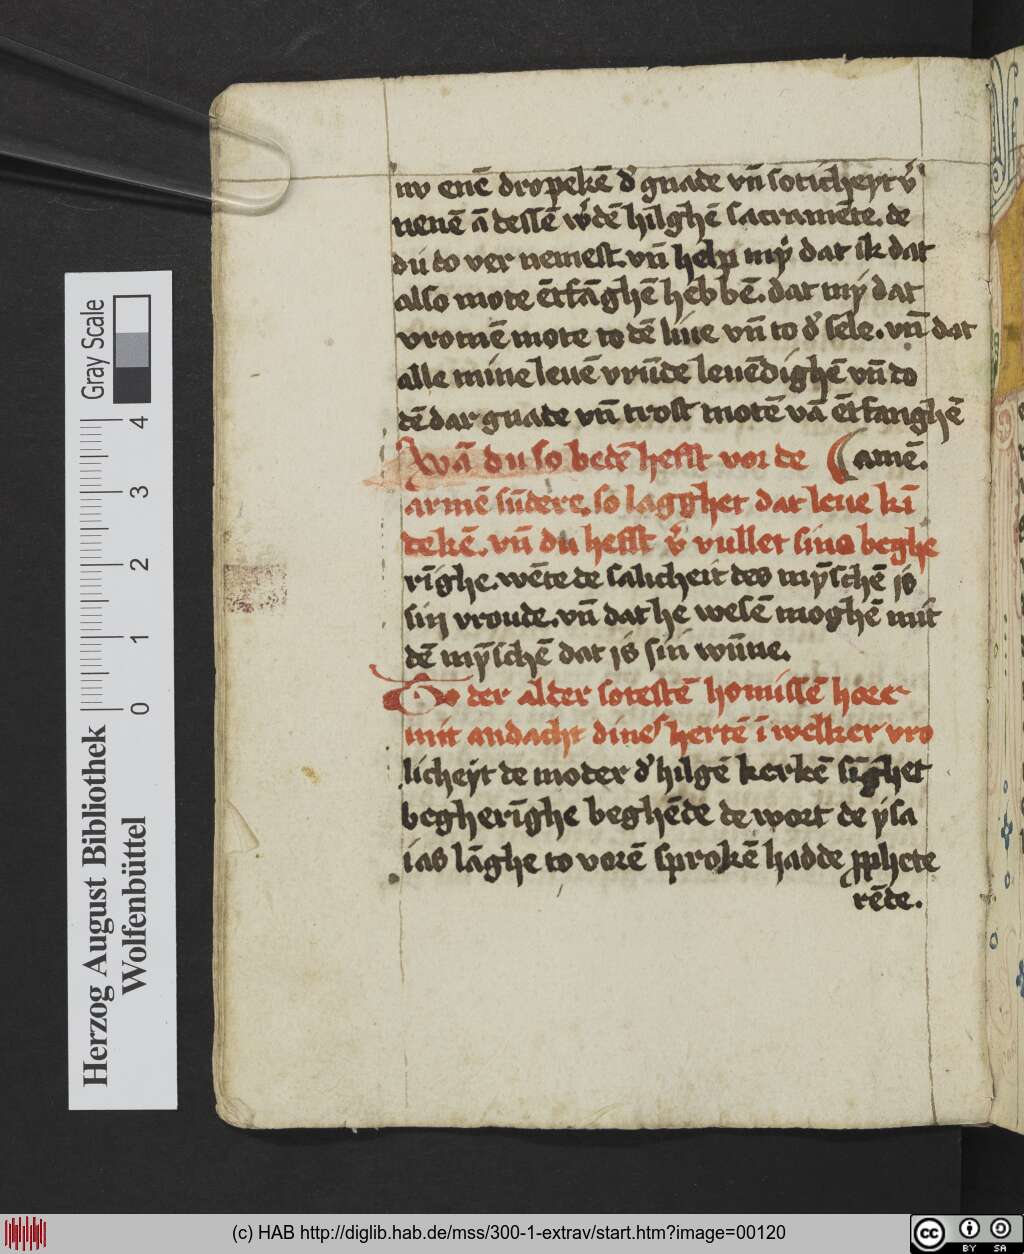 nv enē dropekē dʼ gnade vn̄ soticheyt vʼ
nenē ā dessē wʼdē hilghē sacramēte. de
du to ver nemest. vn̄ help my dat ik dat
also mote ētfāghē hebbē. dat my dat
vromē mote to dē liue vn̄ to dʼ sele. vn̄ dat
alle mine leuē vrūde leuēdighē vn̄ do
dē dar gnade vn̄ trost motē vā ētfanghē
Wā du so bedē hefst vor de amē.
armē sūdere. so lagghet dat leue kī
dekē. vn̄ du hefst vʼ vullet sine beghe
rīghe. wēte de salicheit des mȳschē is
sin vroude. vn̄ dat he wesē moghē mit
dē mȳschē dat is sin wūne.
To der alder sotestē homissē hoer
mit andacht dines hertē ī welker vro
licheyt de moder dʼ hilgē kerkē sīghet
begherīghe beghēde de wort de ysa
ias lāghe to vorē sprokē hadde ꝓphete
rēde.
Herzog August Bibliothek
Wolfenbüttel
0 1 2 3 4
Gray Scale
(c) HAB http://diglib.hab.de/mss/300-1-extrav/start.htm?image=00120
cc BY SA